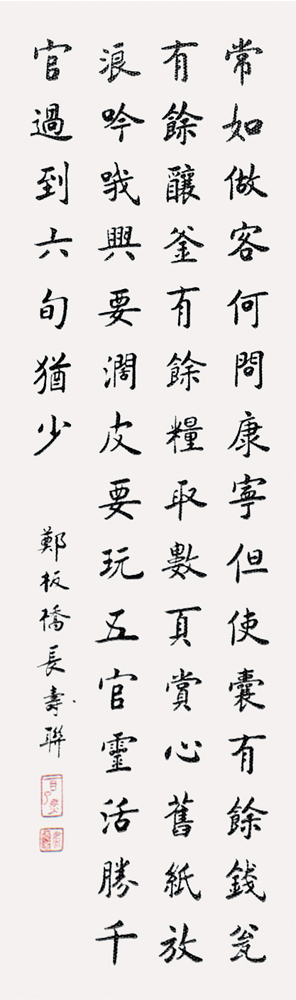 常如做客何問康寧但使囊有餘錢瓮
有餘釀釜有餘糧取數頁賞心舊紙放
浪吟哦興要濶皮要玩五官靈活勝千
官過到六旬猶少
鄭板橋長壽聯